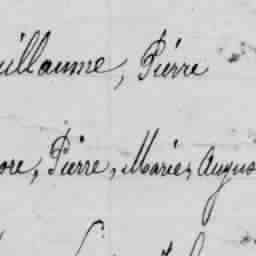 uillaume, Pierre
ore, Pierre, Marie, Augus